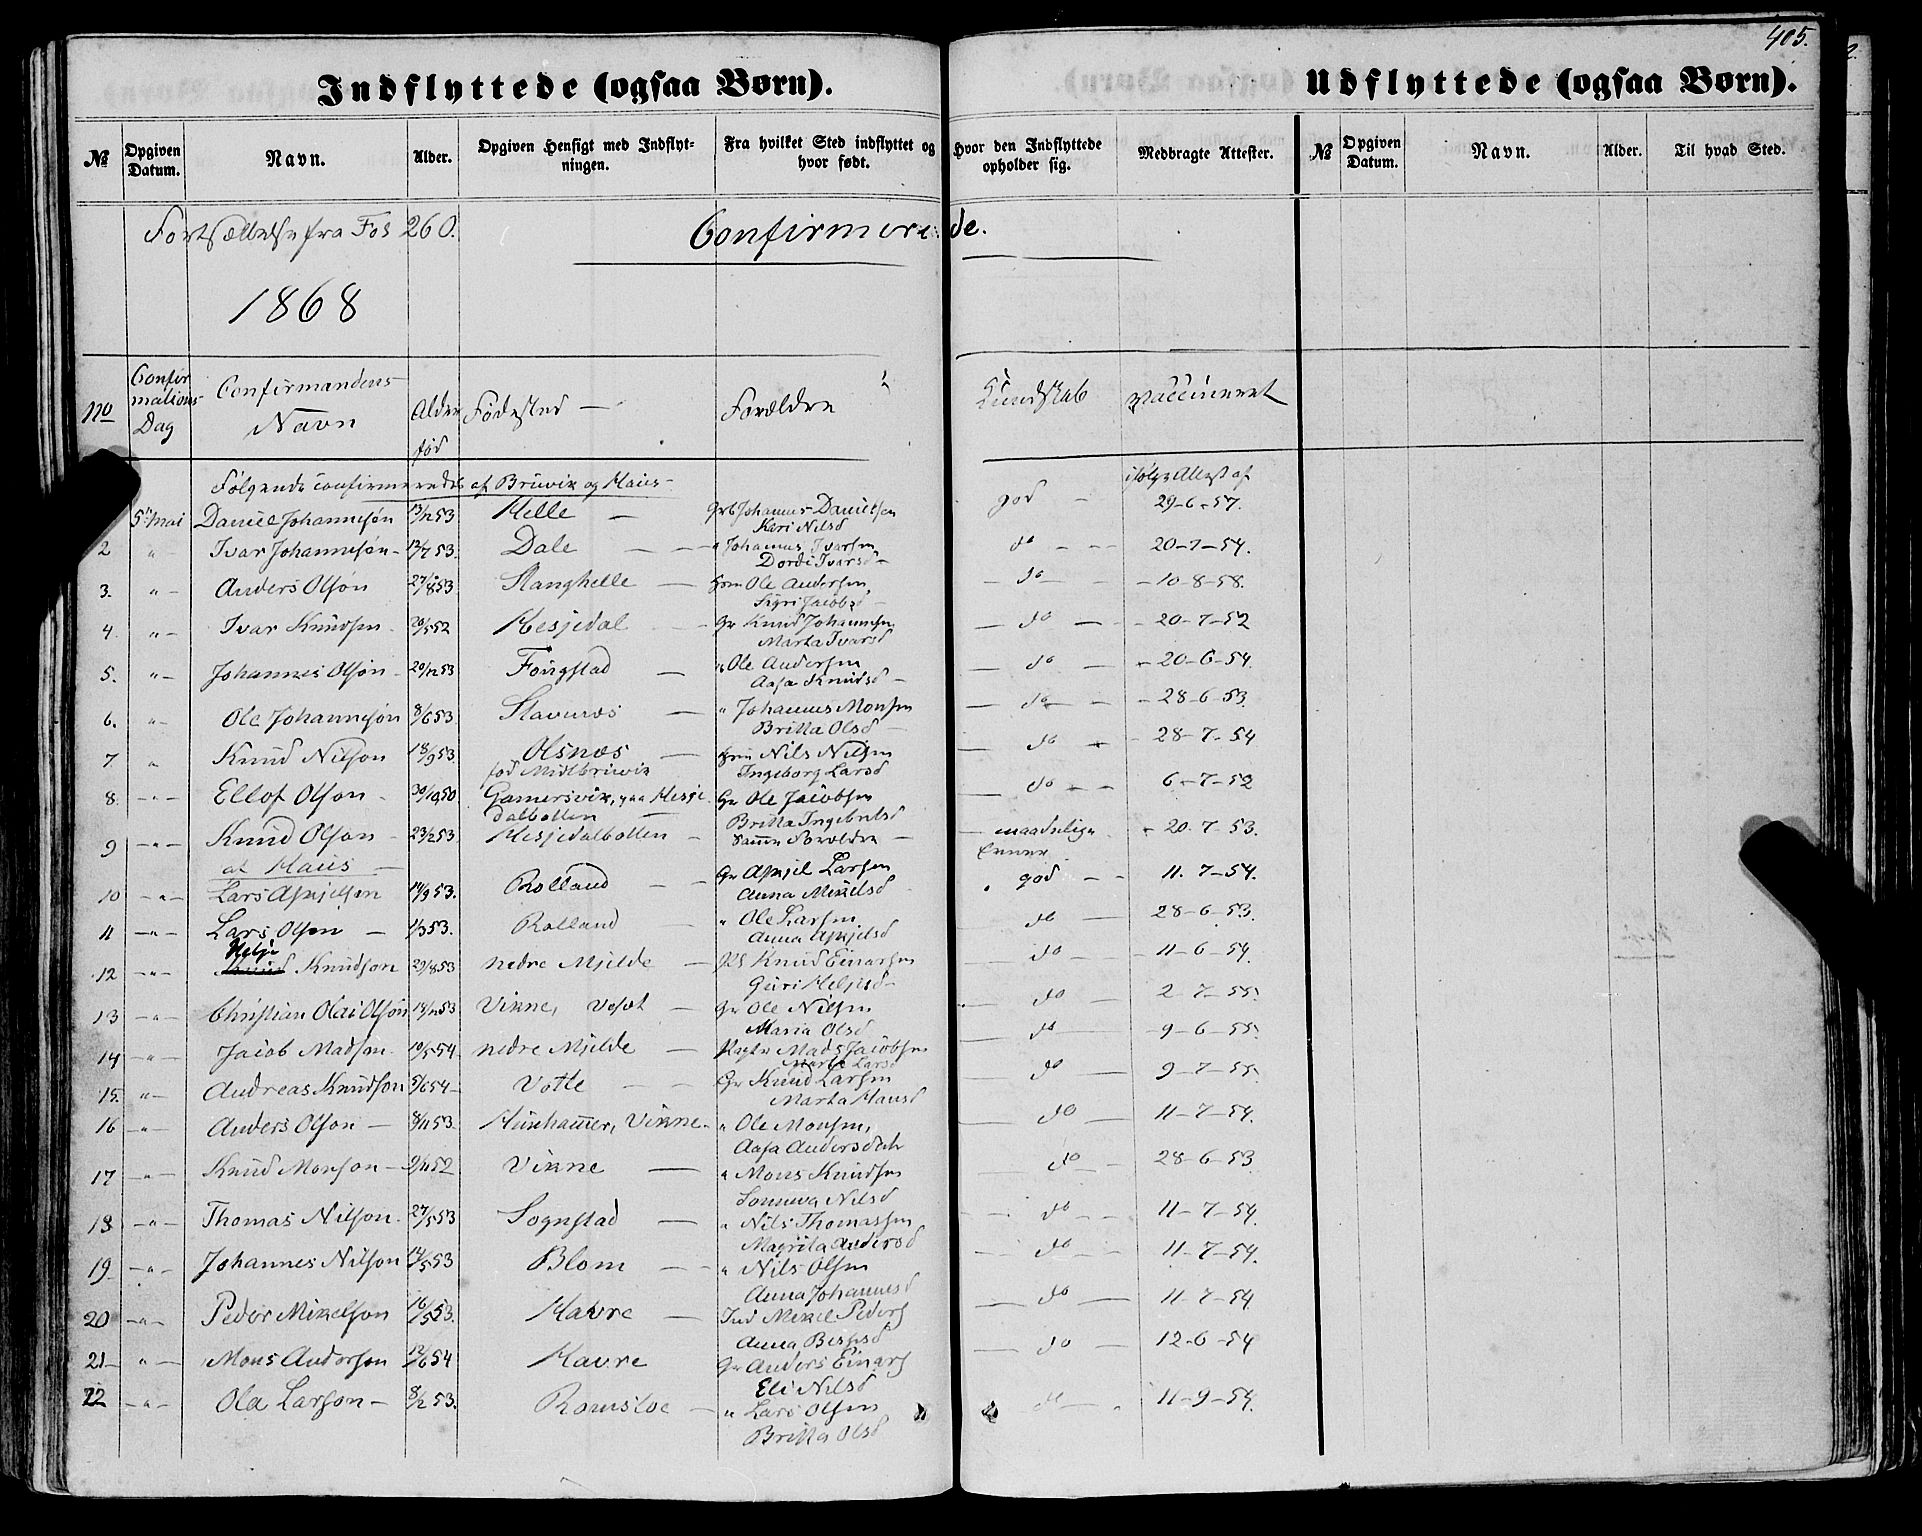 405.
Indflyttede (ogsaa Børn).
Udflyttede (ogsaa Børn).
№ Opgiven Datum. Navn. Alder. Opgiven Hensigt med Indflytningen. Fra hvilket Sted indflyttet og hvor født. Hvor den Indflyttede opholder sig. Medbragte Attester. № Opgiven Datum. Navn. Alder. Til hvad Sted.
Fortsættelse fra Fol 260. Confirmerede.
1868
No Confirmations Dag Confirmandens Navn Alder født Fødested Forældre Kundskab vaccineret
Følgende confirmeredes af Bruvik og Haus ifølge Attest af
5 Mai Daniel Johannesøn 53 Helle Johannes Danielsen god 29-6-57.
Kari Nilsd
2 " Ivar Johannesøn 12/7 53. Dale " Johannes Ivarsen do 20-7-54.
Dordi Ivarsd
3. " Anders Olson 27/8 53 Stanghelle Hm Ole Andersen do 10-8-58.
Sigri Jacobsd
4. " Ivar Knudsen 20/5 52 Hesjedal Gr Knud Johannesen do 20-7-52
Marta Ivarsd
5. " Johannes Olson 20/12 53 Fougstad " Ole Andersen do 20-6-54.
Aasa Knudsd
6. " Ole Johannesøn 8/6 53 Stavenes " Johannes Monsen do 28-6-53.
Britta Olsd
7. " Knud Nilson 18/9 53 Olsnæs Hm Nils Nilsen do 28-7-54
fød Midtbruvik Ingeborg Larsd
8. " Ellof Olson 30/10 50 Gamersvik, Hesje Gr Ole Jacobsen do 6-7-52
dalbotten Britta Ingebrilsd
9 " Knud Olson 23/2 53 Hesjedalbotten Samme Forældre maadelige Evner 20-7-53.
af Haus
10 " Lars Askjelsen 53. Rolland Gr Askjel Larsen god 11-7-54.
Anna Mikelsd
11 " Lars Olsen 53. Rolland " Ole Larsen do 28-6-53.
Anna Askjelsd
12 " Helje Knudson 29/8 53 nedre Mjelde Knud Einarsen do 11-6-54.
Guri Heljesd
13 " Christian Olai Olson 14/12 53 Vikne, Gr Ole Nilsen do 2-7-55.
Maria Olsd
14 " Jacob Madsen 10/5 54 nedre Mjelde Mads Jacobsen do 9-6-55.
Marta Larsd
15. " Andreas Knudson 5/6 54 Votle Gr Knud Larsen do 9-7-55.
Marta Hansd
16 " Anders Olson 8/11 53. Hushammer, Vikne " Ole Monsen, do 11-7-54.
Aasa Andersdatr
17 " Knud Monson 9/11 52 Vikne " Mons Knudsen do 28-6-53
Sonneva Nilsd
18 " Thomas Nilson 27/5 53 Sognstad " Nils Thomassen do 11-7-54.
Magrita Andersd
19 " Johannes Nilson 14/5 53 Blom " Nils Olsen do 11-7-54.
Anna Johannesd
20 " Peder Mikelson 16/5 53. Havre Ind Mikel Peders do 11-7-54
Anna
21 " Mons Anderson 12/6 54 Havre Gr Anders Einars do 12-6-54
Eli Nilsd
22 " Ola Larson 8/2 53. Romsloe " Lars Olsen do 11-9-54.
Britta Olsd